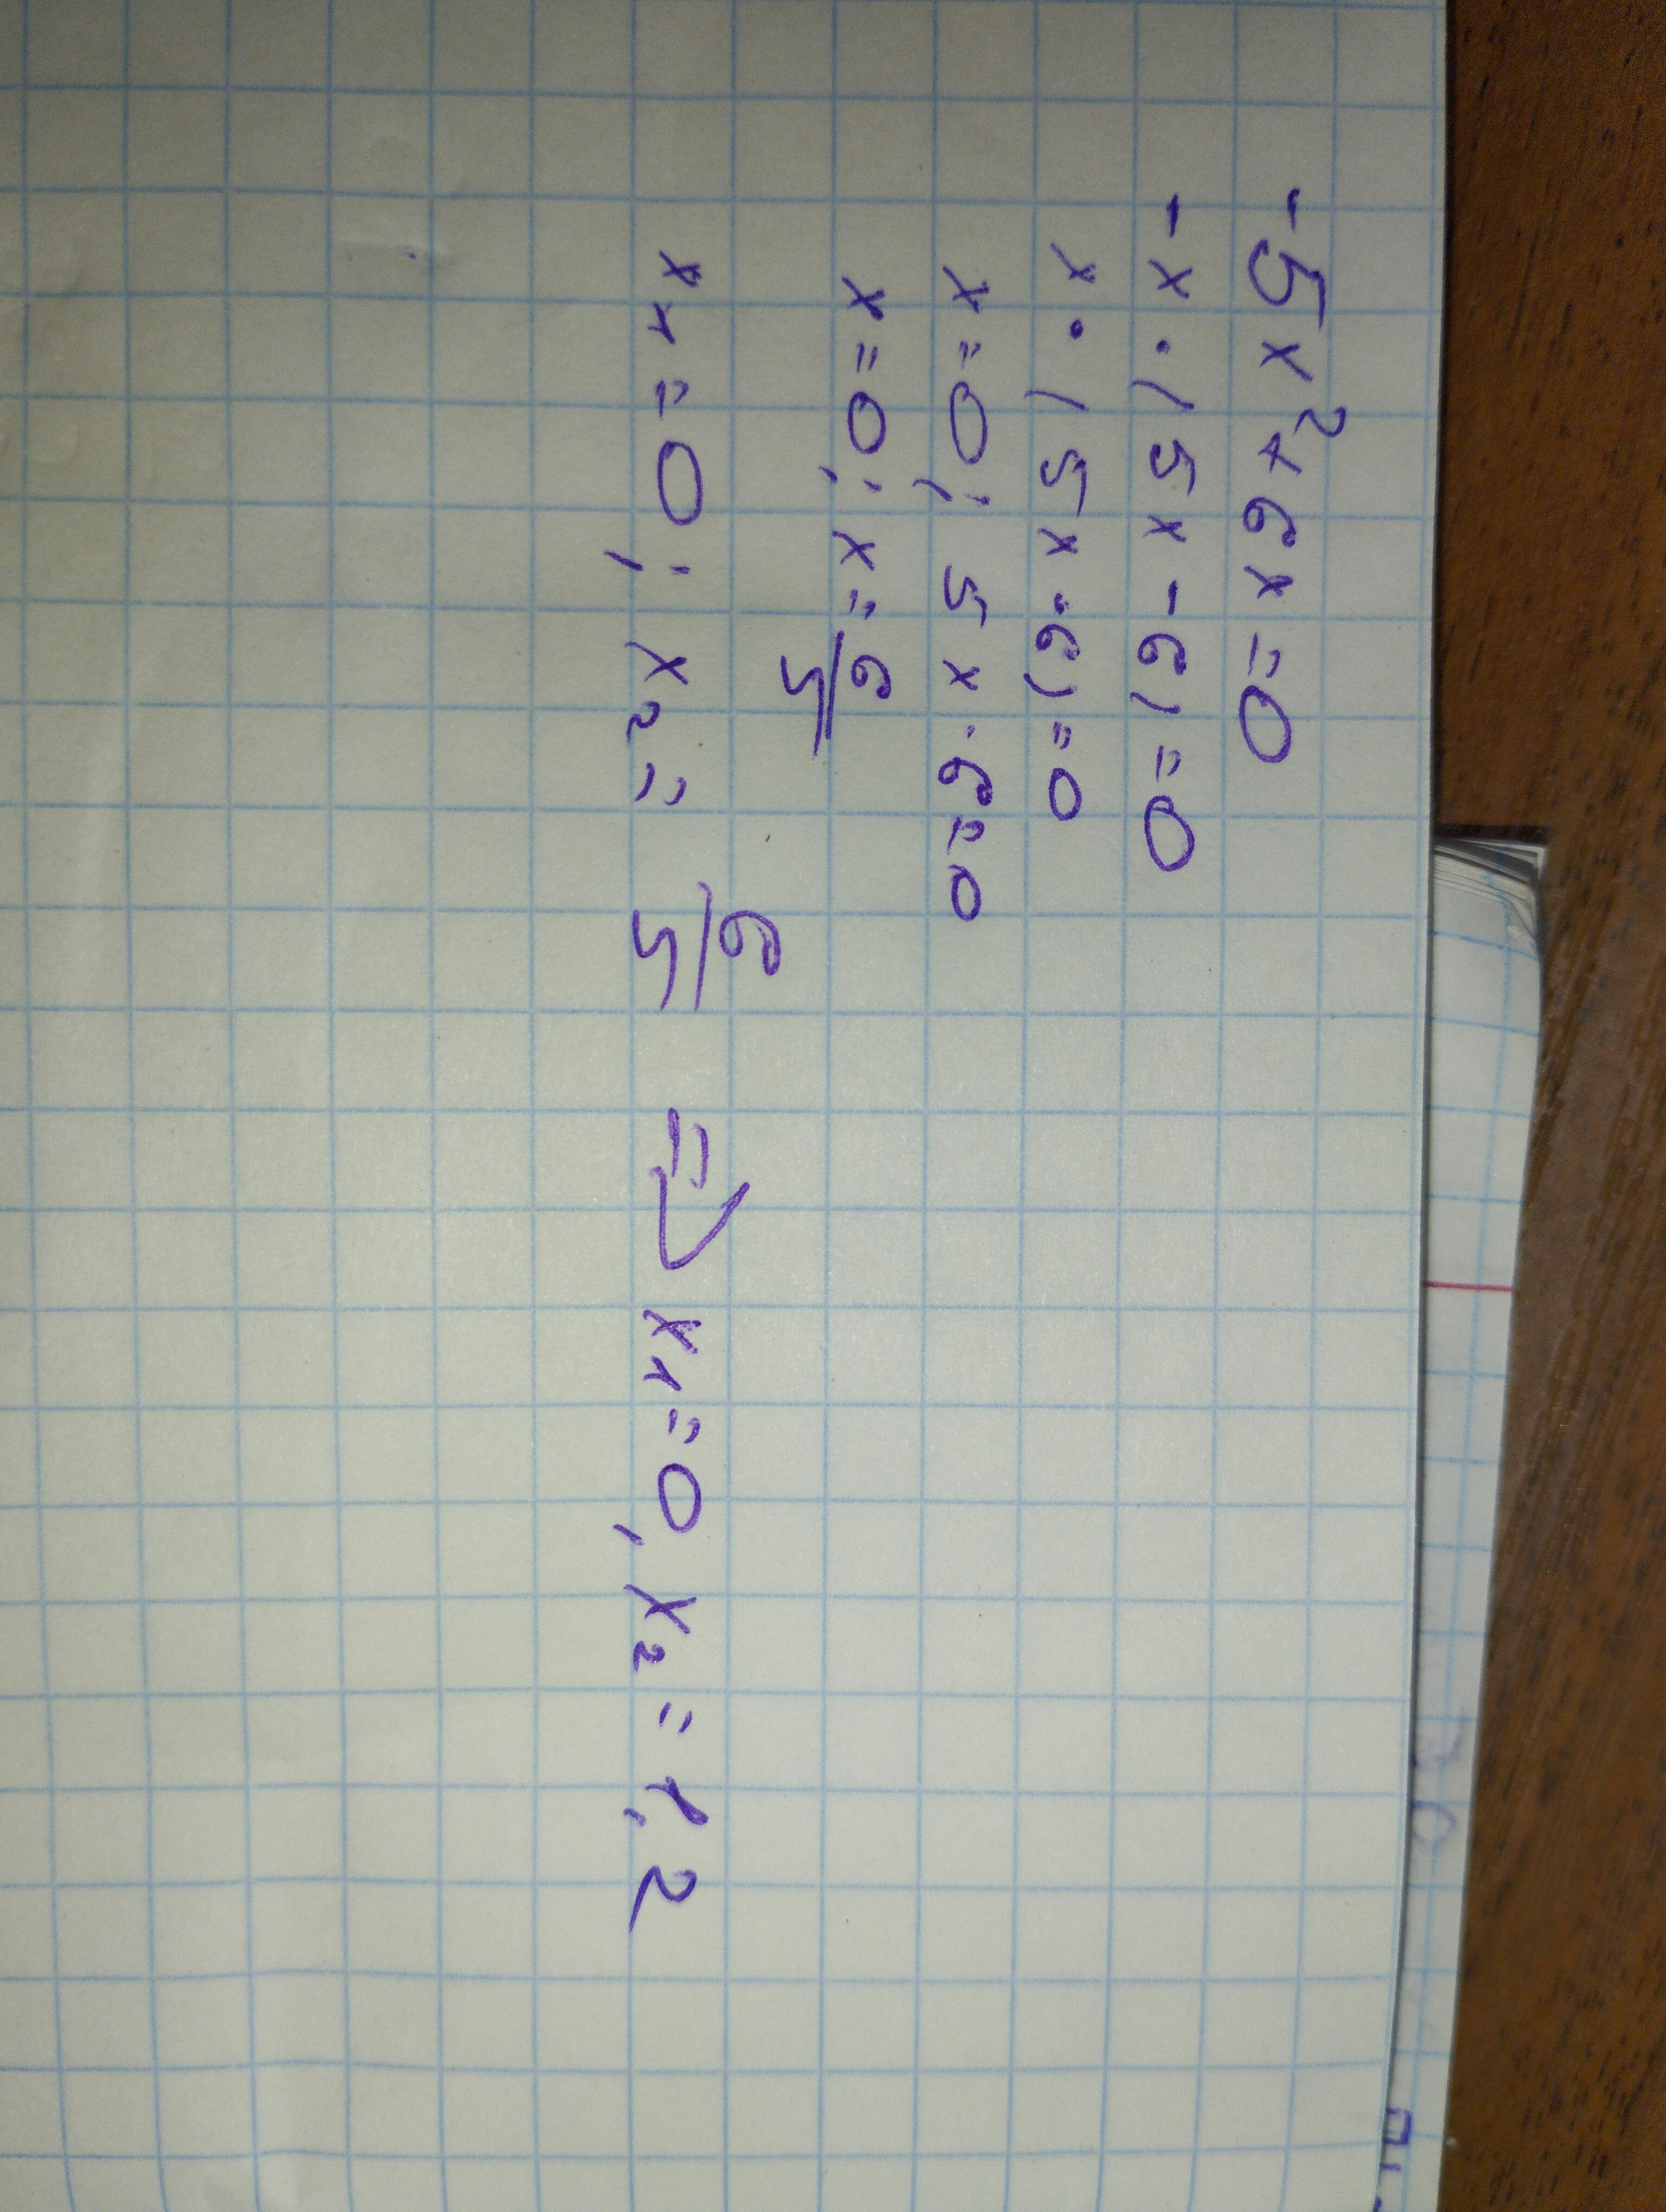 -5x²+6x=0
-x·(5x-6)=0
x·(5x-6)=0
x=0; 5x-6=0
x=0; x=6/5
x₁=0; x₂= 6/5 => x₁=0, x₂=1,2